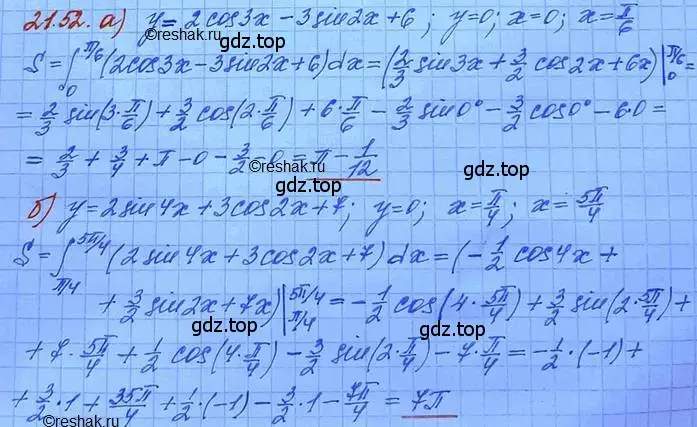 21.52. а) y = 2cos3x - 3sin2x + 6; y=0; x=0; x=π/6
S = ∫₀^{π/6} (2cos3x - 3sin2x + 6)dx = (2/3 sin3x + 3/2 cos2x + 6x) |₀^{π/6} =
= 2/3 sin(3·π/6) + 3/2 cos(2·π/6) + 6·π/6 - 2/3 sin0° - 3/2 cos0° - 6·0 =
= 2/3 + 3/4 + π - 0 - 3/2 - 0 = π - 1/12
©reshak.ru
gdz.top gdz.top gdz.top
б) y = 2sin4x + 3cos2x + 7; y=0; x=π/4; x=5π/4
S = ∫_{π/4}^{5π/4} (2sin4x + 3cos2x + 7)dx = (-1/2 cos4x +
+ 3/2 sin2x + 7x) |_{π/4}^{5π/4} = -1/2 cos(4·5π/4) + 3/2 sin(2·5π/4) +
gdz.top gdz.top gdz.top
+ 7·5π/4 + 1/2 cos(4·π/4) - 3/2 sin(2·π/4) - 7·π/4 = -1/2·(-1) +
+ 3/2·1 + 35π/4 + 1/2·(-1) - 3/2·1 - 7π/4 = 7π
©reshak.ru
gdz.top gdz.top gdz.top